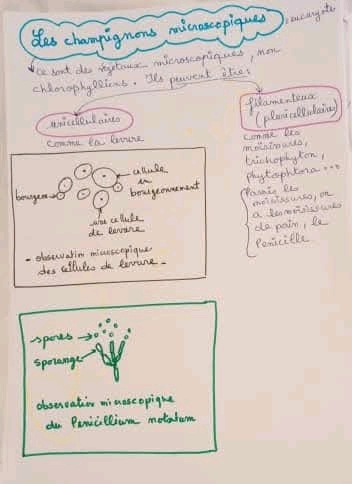 Les champignons microscopiques, eucaryote
Ce sont des végétaux microscopiques, non
chlorophylliens. Ils peuvent être:
unicellulaires
comme la levure
bourgeon
cellule
en
bourgeonnement
une cellule
de levure
- observation microscopique
des cellules de levure -
filamenteux
(pluricellulaires)
comme les
moisissures,
trichophyton,
phytophtora...
Parmis les
moisissures, on
a les moisissures
de pain, le
Penicille.
spores
sporange
observation microscopique
du Penicillium notatum